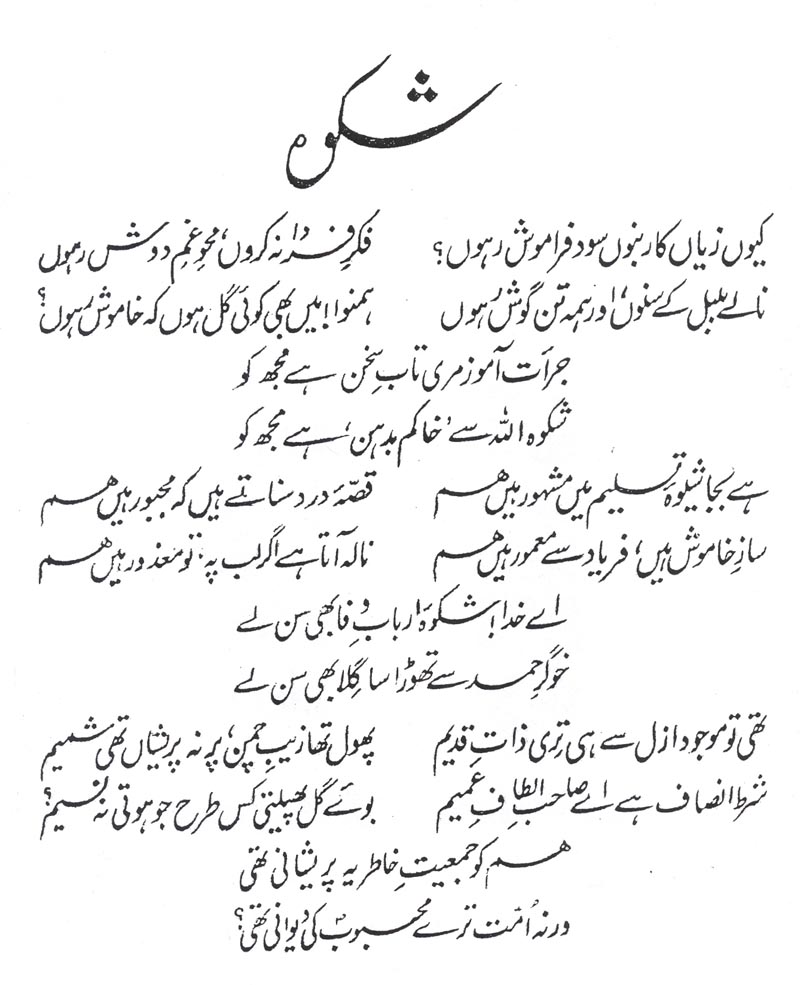 شکوہ
کیوں زیاں کار بنوں سود فراموش رہوں؟ فکرِ فردا نہ کروں، محوِ غمِ دوش رہوں
نالے بلبل کے سنوں، اور ہمہ تن گوش رہوں ہمنوا! میں بھی کوئی گل ہوں کہ خاموش رہوں؟
جرأت آموز مری تابِ سخن ہے مجھ کو
شکوہ اللہ سے ’خاکم بدہن‘ ہے مجھ کو
ہے بجا شیوۂ تسلیم میں مشہور ہیں ہم قصّۂ درد سناتے ہیں کہ مجبور ہیں ہم
سازِ خاموش ہیں، فریاد سے معمور ہیں ہم نالہ آتا ہے اگر لب پہ، تو معذور ہیں ہم
اے خدا! شکوۂ اربابِ وفا بھی سن لے
خوگرِ حمد سے تھوڑا سا گِلا بھی سن لے
تھی تو موجود ازل سے ہی تِری ذاتِ قدیم پھول تھا زیبِ چمن، پر نہ پریشاں تھی شمیم
شرط انصاف ہے اے صاحبِ الطافِ عمیم بوئے گل پھیلتی کس طرح جو ہوتی نہ نسیم؟
ہم کو جمعیتِ خاطر یہ پریشانی تھی
ورنہ اُمّت ترے محبوبؐ کی دیوانی تھی؟